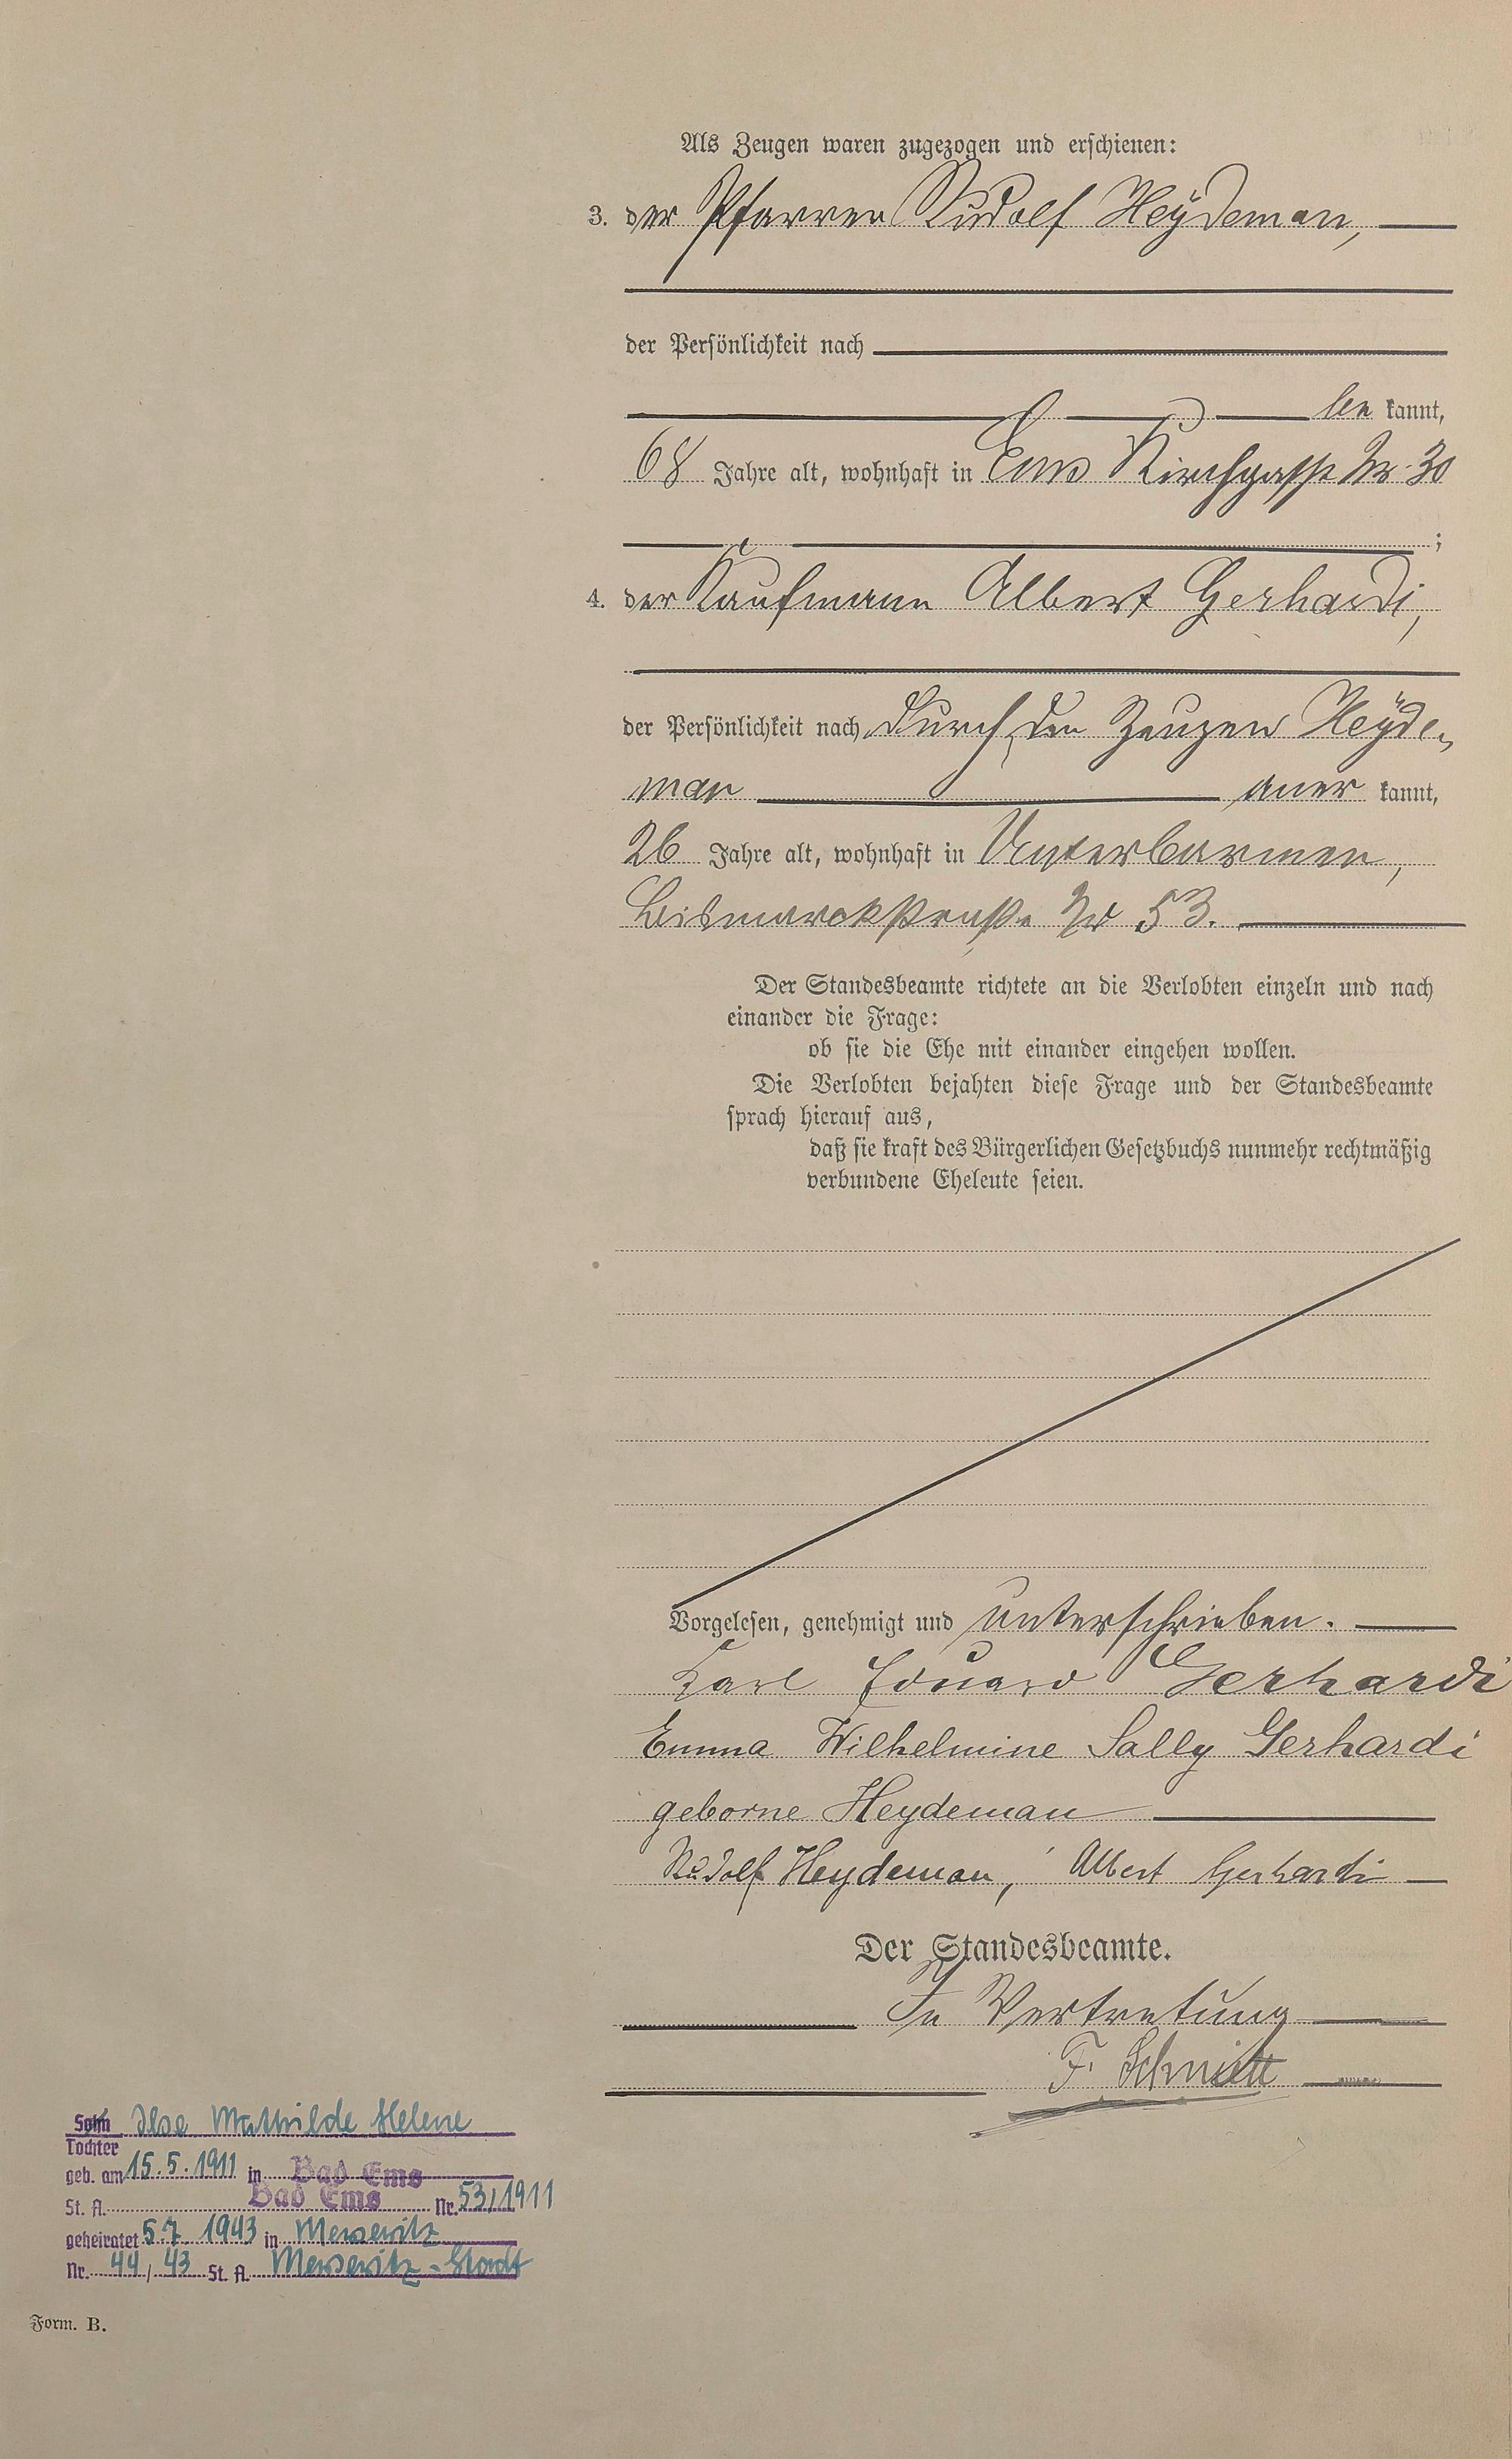 Als Zeugen waren zugezogen und erschienen:
3. der Pfarrer Rudolf Heydeman,
der Persönlichkeit nach
be kannt,
68 Jahre alt, wohnhaft in Ems Kirchgasse Nr. 30
;
4. der Kaufmann Albert Gerhardi,
der Persönlichkeit nach durch den Zeugen Heyde-
man aner kannt,
26 Jahre alt, wohnhaft in Unterbarmen,
Bismarckstraße Nr 53.
Der Standesbeamte richtete an die Verlobten einzeln und nach
einander die Frage:
ob sie die Ehe mit einander eingehen wollen.
Die Verlobten bejahten diese Frage und der Standesbeamte
sprach hierauf aus,
daß sie kraft des Bürgerlichen Gesetzbuchs nunmehr rechtmäßig
verbundene Eheleute seien.
Vorgelesen, genehmigt und unterschrieben.
Karl Eduard Gerhardi
Emma Wilhelmine Sally Gerhardi
geborne Heydeman
Rudolf Heydeman, Albert Gerhardi
Der Standesbeamte.
In Vertretung
F. Schmitt
Sohn Ilse Mathilde Helene
Tochter
geb. am 15.5.1911 in Bad Ems
St. A. Bad Ems Nr. 53/1911
geheiratet 5.7.1943 in Meseritz
Nr. 44/43 St. A. Meseritz-Stadt
Form. B.